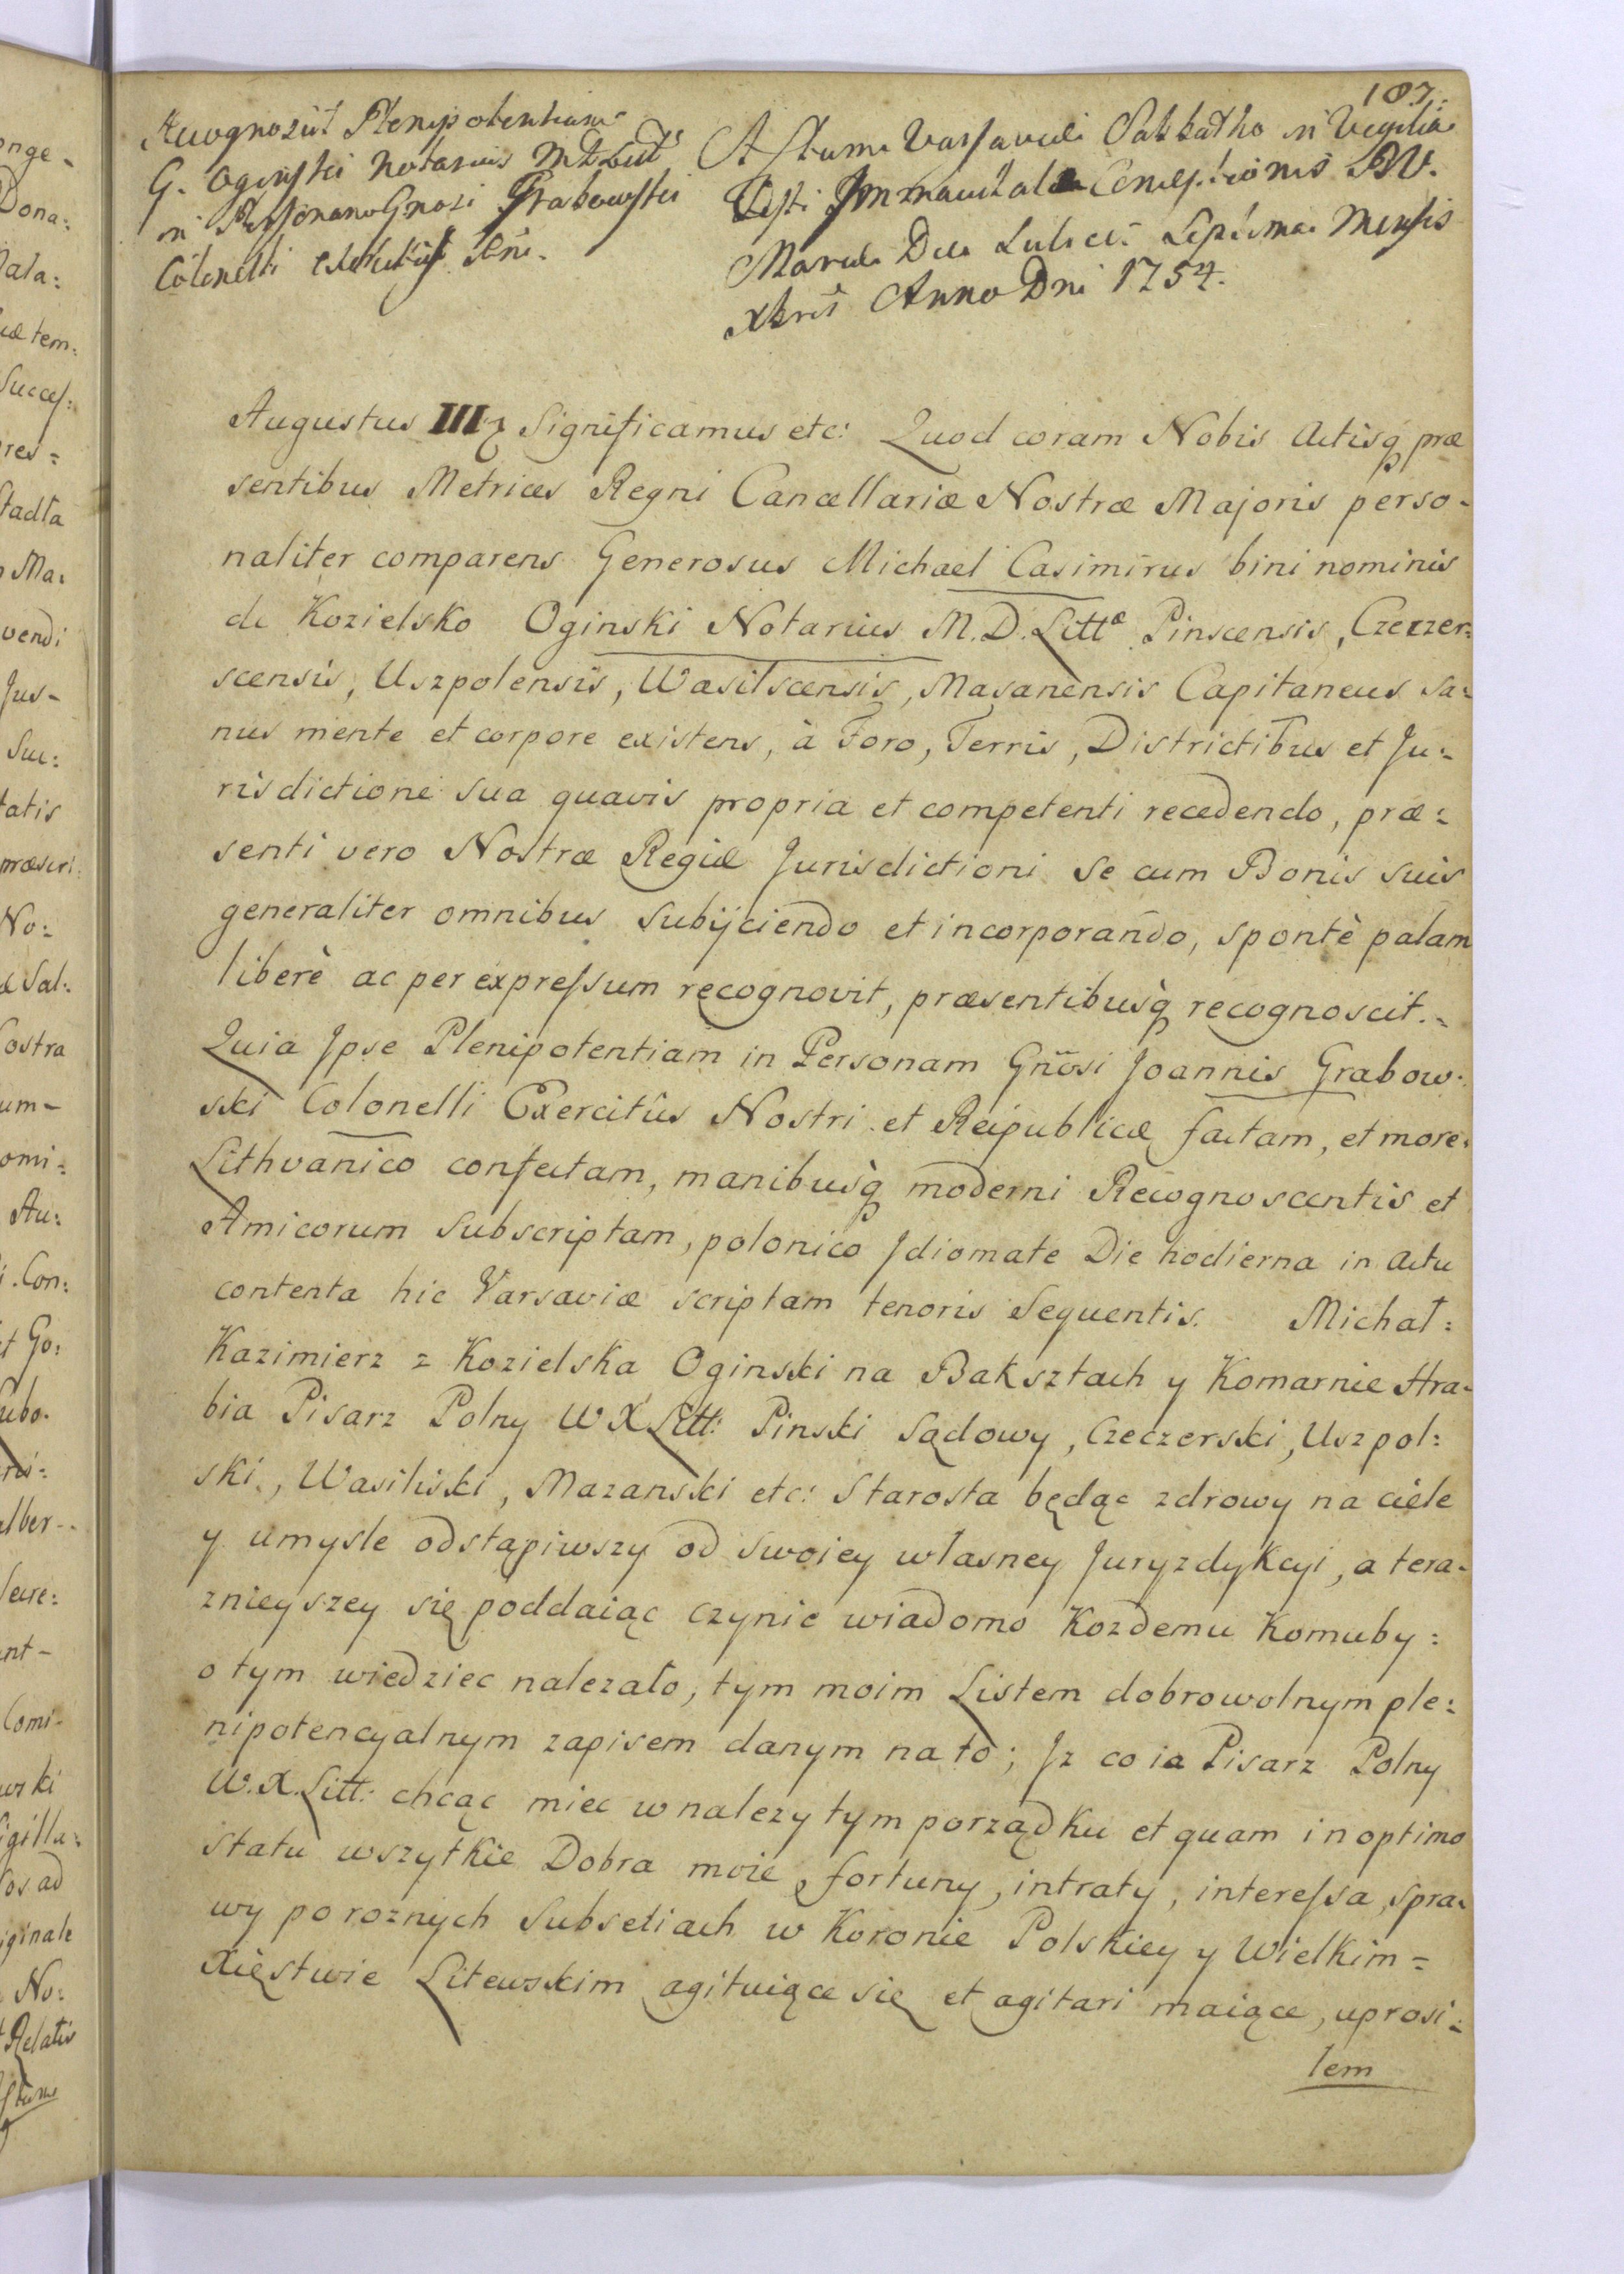 187.
Recognoscit Plenipotentiam
G. Oginski Notarius M D Litt
in Personam Gnosi Grabowski
Colonelli
Actum Varsaviæ Sabbatho in Vigilia
Festi Immaculatæ Conceptionis BV.
Mariæ Die Septima Mensis
Xbris Anno Dni 1754.
Augustus III Significamus etc: Quod coram Nobis Actisq præ
sentibus Metrices Regni Cancellariæ Nostræ Majoris perso-
naliter comparens Generosus Michael Casimirus bini nominis
de Kozielsko Oginski Notarius M.D.Littæ Pinscensis, Czeczer:
scensis, Uszpolensis, Wasilscensis, Masanensis Capitaneus sa:
nus mente et corpore existens, à Foro, Terris, Districtibus et Ju:
risdictione sua quavis propria et competenti recedendo, præ:
senti vero Nostræ Regiæ Jurisdictioni se cum Bonis suis
generaliter omnibus subijciendo et incorporando, spontè palam
liberè ac per expressum recognovit, præsentibusq recognoscit.-
Quia Ipse Plenipotentiam in Personam Gnosi Joannis Grabow-
ski Colonelli Exercitûs Nostri et Reipublicæ factam, et more
Lithvanico confectam, manibusq moderni Recognoscentis et
Amicorum subscriptam, polonico Idiomate Die hodierna in Actu
contenta hic Varsaviæ scriptam tenoris sequentis. Michał:
Kazimierz z Kozielska Oginski na Baksztach y Komarnie Hra-
bia Pisarz Polny W X Litt: Pinski Sądowy, Czeczerski, Uszpol:
ski, Wasiliski, Mazanski etc: Starosta będąc zdrowy na ciele
y umysle odstąpiwszy od swoiey własney Juryzdykcyi, a tera-
znieyszey się poddaiąc czynie wiadomo Kozdemu Komuby:
o tym wiedziec nalezało, tym moim Listem dobrowolnym ple:
nipotencyalnym zapisem danym na to; Iz co ia Pisarz Polny
W.X.Litt: chcąc miec w nalezytym porządku et quam in optimo
statu wszytkie Dobra moie, fortuny, intraty, interessa, spra-
wy po roznych Subseliach w Koronie Polskiey y Wielkim=
Xięstwie Litewskim agituiące się et agitari maiące, uprosi:
lem